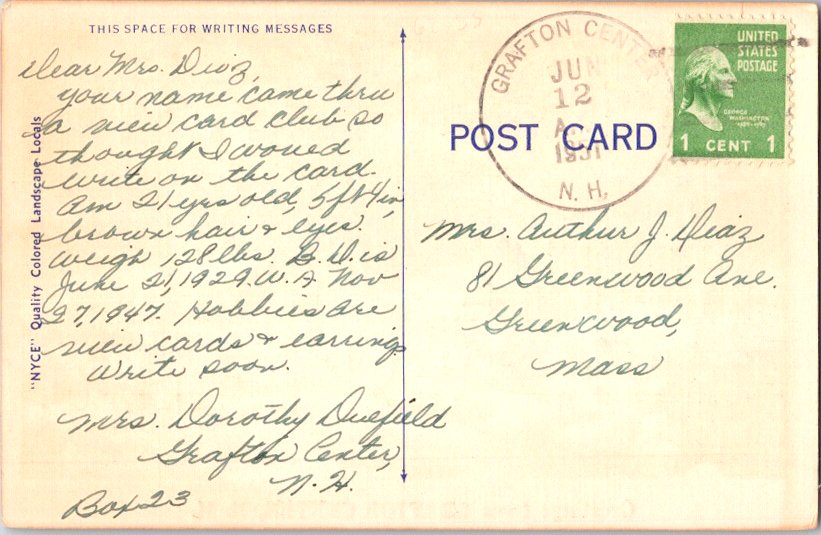 THIS SPACE FOR WRITING MESSAGES
Dear Mrs. Diaz,
Your name came thru
a view card club so
thought I would
write on the card.
Am 21 yrs old, 5 ft 4 in,
brown hair & eyes.
weigh 128 lbs. B.D. is
June 21, 1929. W.A Nov
27, 1947. Hobbies are
view cards & earrings
Write soon.
Mrs. Dorothy
Grafton Center,
N.H.
Box 23
"NYCE" Quality Colored Landscape Locals
GRAFTON CENTER
JUN
12
A
1951
N. H.
UNITED
STATES
POSTAGE
GEORGE
WASHINGTON
1 CENT 1
POST CARD
Mrs. Arthur J. Diaz
81 Greenwood Ave.
Greenwood,
Mass